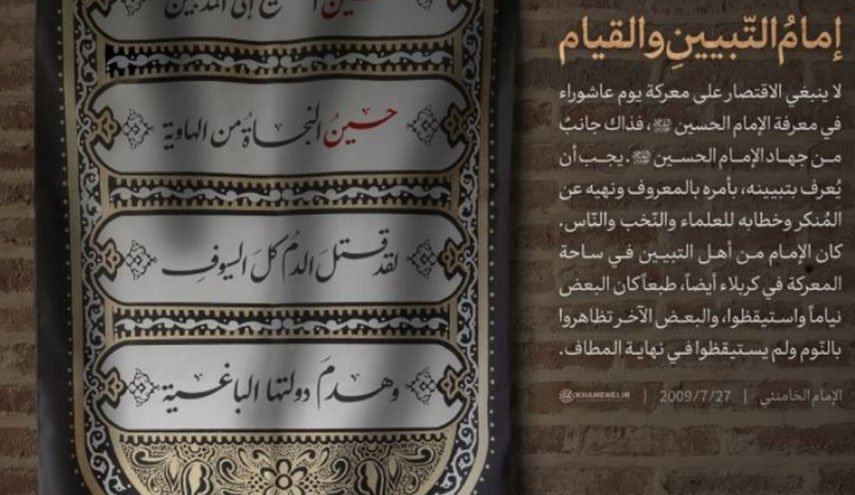 إمامُ التّبيينِ والقيام
لا ينبغي الاقتصار على معركة يوم عاشوراء
في معرفة الإمام الحسين ﷺ، فذاك جانبٌ
من جهاد الإمام الحسين ﷺ. يجب أن
يُعرف بتبيينه، بأمره بالمعروف ونهيه عن
المُنكر وخطابه للعلماء والنّخب والنّاس.
كان الإمام من أهل التبيين في ساحة
المعركة في كربلاء أيضاً، طبعاً كان البعض
نياماً واستيقظوا، والبعض الآخر تظاهروا
بالنّوم ولم يستيقظوا في نهاية المطاف.
الإمام الخامنئي | 2009/7/27 | KHAMENEI.IR
حسينُ النجاةُ من الهاوية
لقد قتلَ الدمُ كلَ السيوفِ
وهدمَ دولتها الباغية